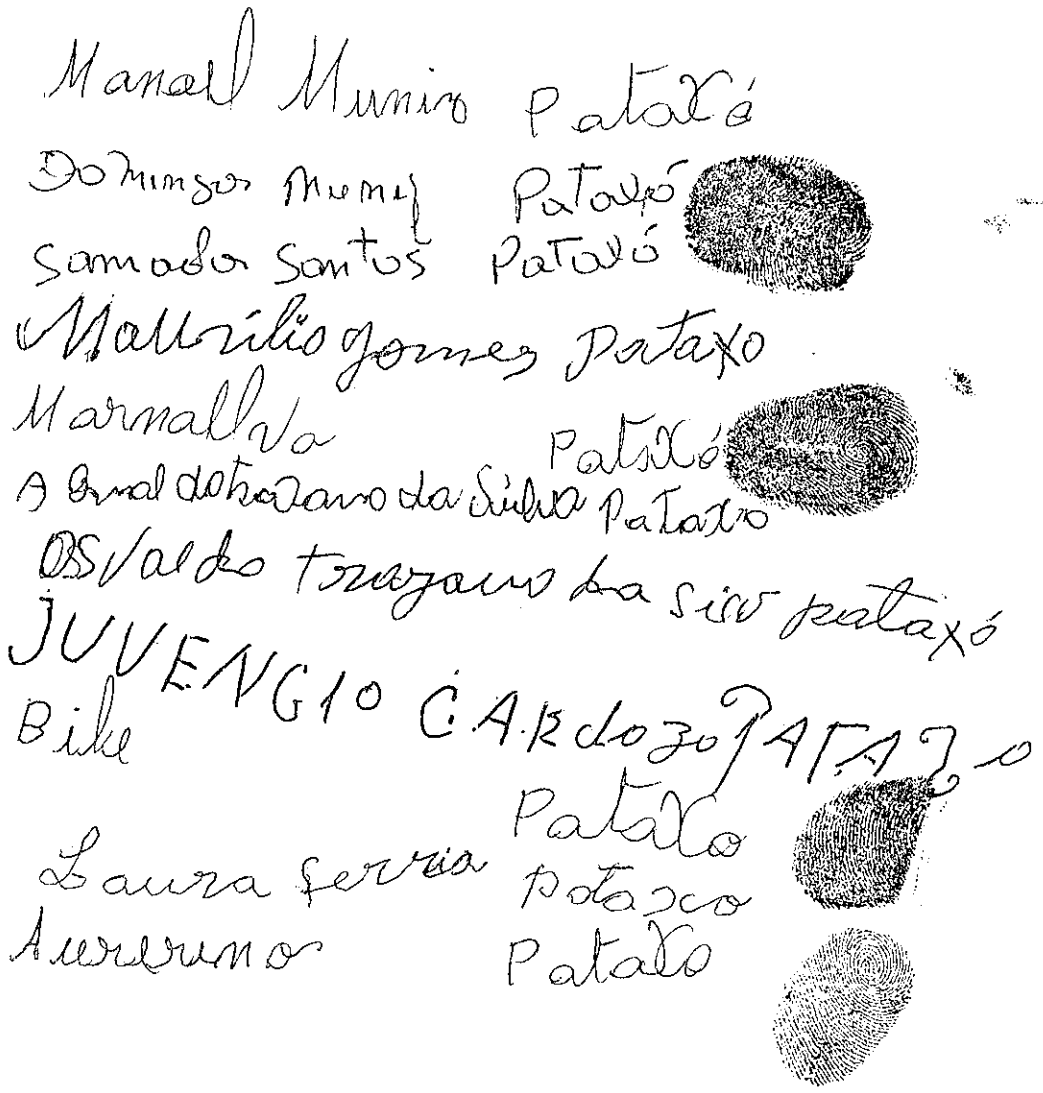 Manoel Muniz Pataxó
Domingos Muniz Pataxó
Samado Santos Pataxó
Maurílio gomes Pataxo
Marnalva Pataxó
da Silva Pataxo
OSValdo trazano da silv pataxó
JUVENGIO CARdozo PATAXO
Bike Pataxo
Laura ferria Pataxo
Aurerino Pataxo